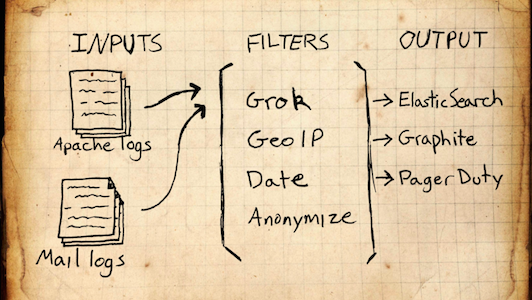 INPUTS
Apache logs
Mail logs
FILTERS
Grok
GeoIP
Date
Anonymize
OUTPUT
ElasticSearch
Graphite
PagerDuty